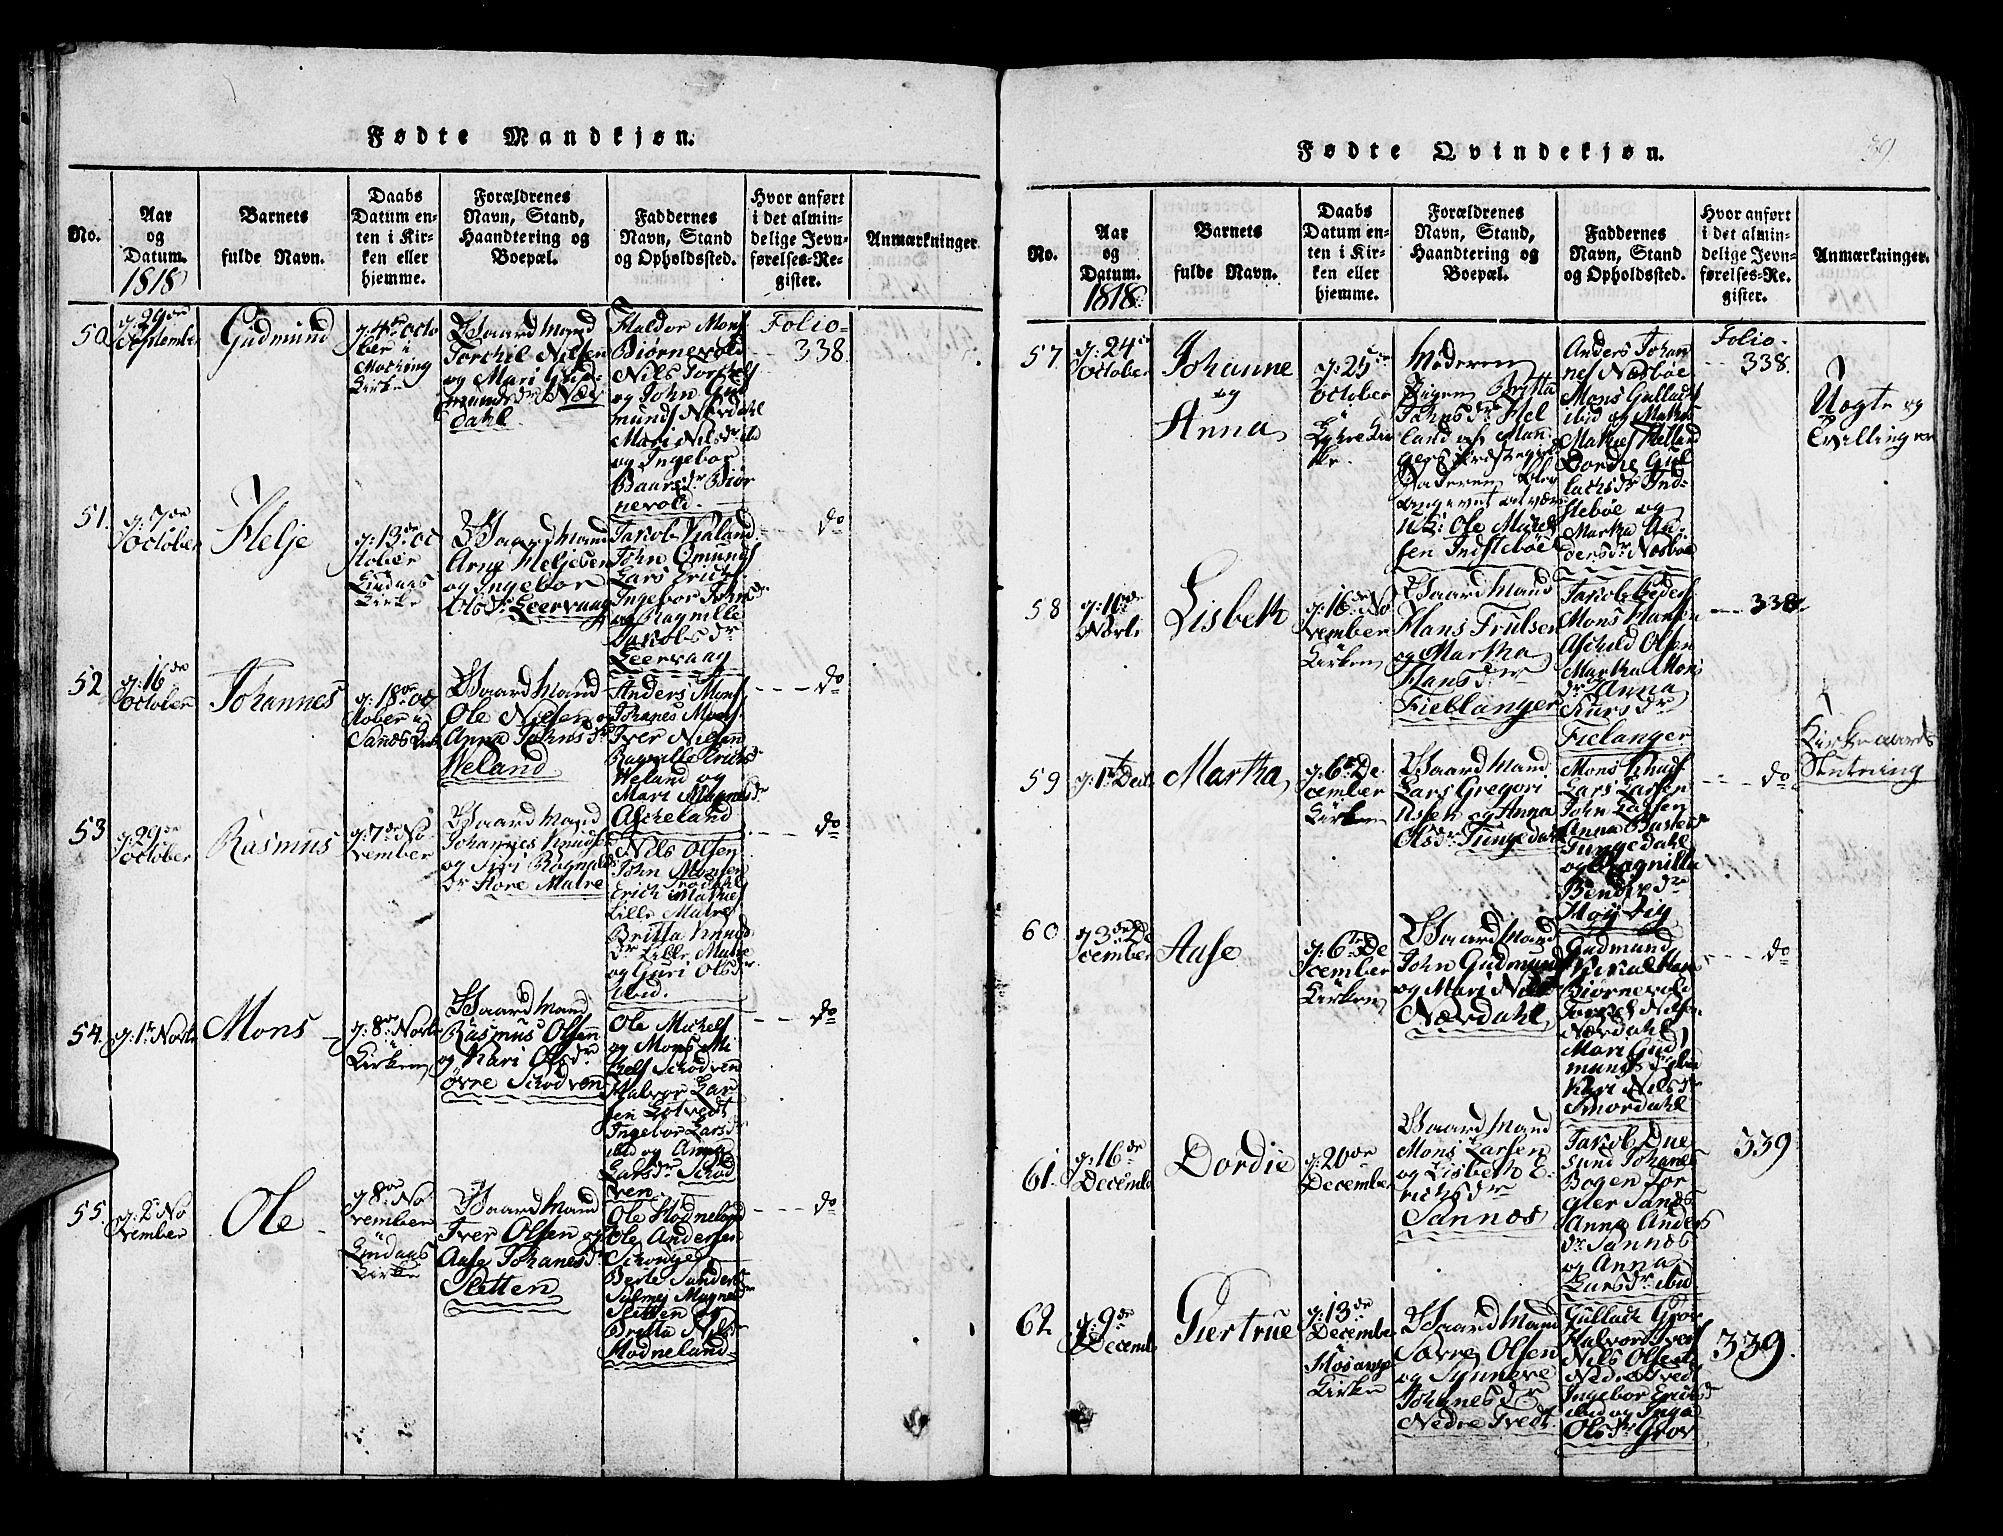 Fødte Mandkjøn.
No.
Aar
og
Datum.
1818
Barnets
fulde Navn.
Daabs
Datum en-
ten i Kir-
ken eller
hjemme.
Forældrenes
Navn, Stand,
Haandtering og
Boepæl.
Faddernes
Navn, Stand
og Opholdssted.
Hvor anført
i det almin-
delige Jevn-
førelses-Re-
gister.
Anmarkninger.
50
d: 29de
September
Gudmund
d: 4de octo
ber i
Kirke
Gaardmand
Torchil Nilsen
og Mari Gud-
mundsdr Nær
dahl.
Haldor Mons
Biørnevold
Nils Torchels
og John Gud
munds Nærdahl
Mari Nilsdr ibd
og Ingebor
Baarsdr Biør
nevold.
Folio-
338.
51.
d: 7de
October
Helje
d: 13de oc
tober
Lindaas
Kirke
Gaardmand
Arne Heljesen
og Ingebor
Olsdr Leervaag
Jakob
John Omunds
Lars Erichs
Ingebor Johnsdr
og Ragnille
Jakobsdr
Leervaag
do
52
d: 16de
October
Johannes
d: 18de oc
tober i
Sandes Kirke
Gaardmand
Ole Nilsen og
Anna Johnsdr
Weland
Anders Mons
Johanes Mons
Iver Nilsen
Ragnille Erichsdr
Weland og
Mari Magnesdr
Ascheland
do
53
d: 29de
October
Rasmus
d: 7de No
vember
Gaardmand
Johannes Knuds
og Siri Ragnalds
dr Store Matre
Nils Olsen
John Monsen
Erich Mathies
Lille Matre
Britta Knuds
dr Lille Matre
og Guri Olsdr
ibid.
do
54.
d: 1te Novbr
Mons
d: 8de Novbr
i
Kirken
Gaardmand
Rasmus Olsen
og Kari Olsdr
øvre Schodven
Ole Michels
og Mons Mi
kels Schodven
Halvor Lar
sen Lotvedt
Ingebor Larsdr
ibid og Anna
Larsdr Schod
ven
do
55.
d: 2de No
vember
Ole
d: 8de No
vember
Lindaas
Kirke
Gaardmand
Iver Olsen og
Aase Johanesdr
Sletten
Ole Hodneland
Ole Andersen
Berte Sanders
Sylmej Magnesdr
Sletten og
Britta Nilsdr
Hodneland
do
Fødte Qvindekjøn.
39.
No.
Aar
og
Datum.
1818.
Barnets
fulde Navn.
Daabs
Datum en-
ten i Kir-
ken eller
hjemme.
Forældrenes
Navn, Stand,
Haandtering og
Boepæl.
Faddernes
Navn, Stand
og Opholdssted.
Hvor anført
i det almin-
delige Jevn-
førelses-Re-
gister.
Anmarkninger.
57
d: 24de
October
Johanne
og
Anna
d: 25de
October
i
Kir
ke.
Moderen
Pigen Brytta
Johnsdr Hel
land af Man
gers Præstegield
Faderen blev
angivet at væ
re: Ole Mikel
sen Indstebøe
Anders Johan
nes Næsbøe
Mons Gullachs
ibid og Mathi
Mathies Helland
Dordie Gul
lachsdr Ind-
stebøe og
Martha An
dersdr Næsbøe
Folio-
338.
Uægte og
Tvillinger
58
d: 10de
Novbr
Lisbeth
d: 16de No
vember
i
Kirken
Gaardmand
Hans Trulsen
og Martha
Hansdr
Fieblanger
Jakob Peders
Mons Hansen
Aschild Olsen
Martha Mons
dr Anna
Larsdr
Fielanger
338
59
d: 1te Decbr
Martha
d: 6te De
cember i
Kirken
Gaardmand
Lars Gregori
ussen og Anna
Olsdr Tungedahl
Mons Knuds
Lars Larsen
John Larsen
Anna
Tungedahl
og Ragnilla
Bendixdr
do
Kirkegaards
Slutning
60
d: 3de De
cember
Aase
d: 6te De
cember i
Kirken
Gaardmand
John Gudmunds
og Mari Nilsdr
Nærdahl
Gudmund
Biørnevold
Torchel Nilsen
Nærdahl
Mari Gud
mundsdr ibid
Kari Nilsdr
Smørdahl
do
61.
d: 16de
December
Dordie
d: 20de
December
Gaardmand
Mons Larsen
og Lisbeth E-
richsdr
Sannæs
Jakob Due
sund Johanes
Bogen For
gier Sandes
Anna Anders
dr Sannæs
og Anna
Larsdr ibid
339
62
d: 9de
Decembr
Giertrue
d: 13de
December
i
Mosanger
Kirke
Gaardmand
Siver Olsen
og Synneve
Johanesdr
Nedre Tvedt
Gullach Grov
Halvor Ivers
Nils Olsen
Nedre Tvedt
Ingebor Erichsdr
ibid og Inga
Olsdr Grov
339.